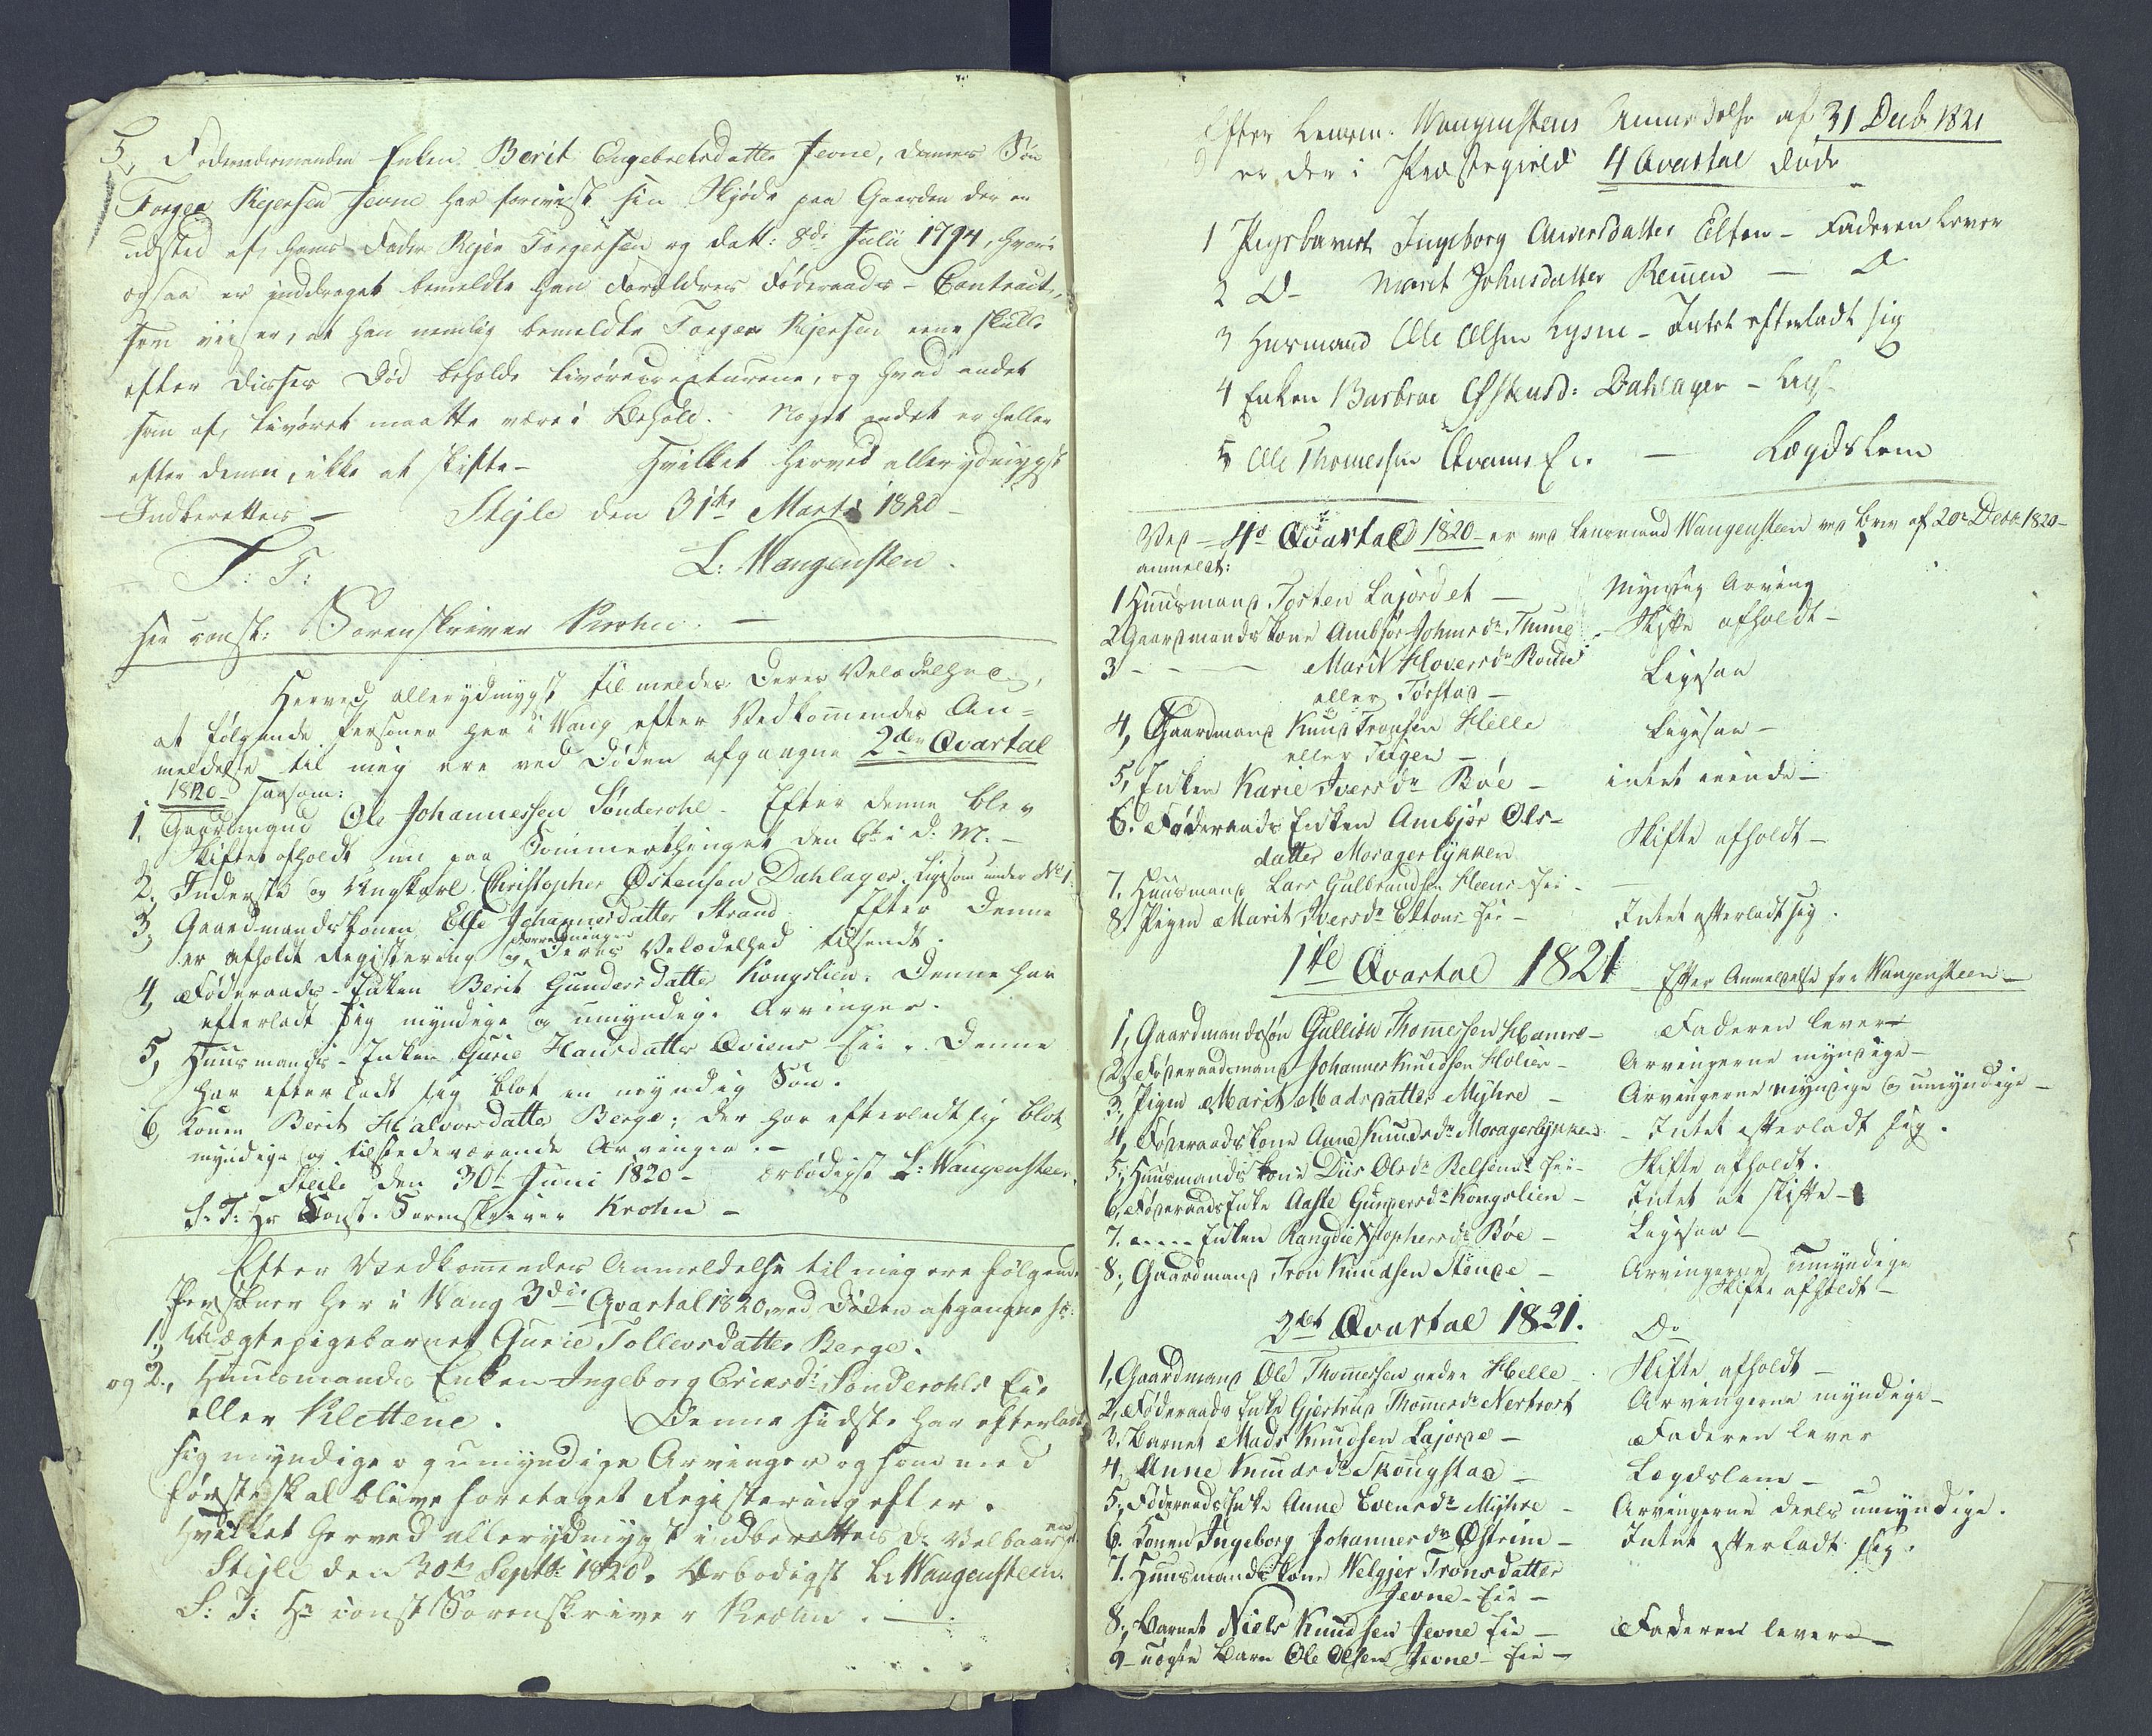 5, Föderaadsmanden Enken Berit Engebretsdatter Jevne, dennes Sön
Torger Rejersen Jevne har foreviist sin Skjöde paa Gaarden der er
udsted af hans Fader Rejer Torgersen og datt: 8de Julii 1794, hvori
ogsaa er inddraget bemeldte han Forældres Föderaads-Contract,
som viiser, at han nemlig bemeldte Torger Rejersen ene skulle
efter disses Död beholde Livörecreaturene, og hvad andet
som af Livöret maatte være i Behold. Noget andet er heller
efter denne, ikke at skifte - Hvilket herved allerydmygst
Indberettes - Stejle den 31te Marts 1820 -
S: T: L: Wangensten.
Hr const: Sorenskriver Krohn. -
Herved allerydmygst tilmeldes Deres Velædelhed,
at fölgende Personer her i Wang efter Vedkommendes An=
meldelse til mig ere ved Döden afgaagne 2den Qvartal
1820 - saasom:
1, Gaardmand Ole Johannessen Sönderohl - Efter denne blev
Skiftet afholdt nu paa Sommerthinget den 6te i d: M. -
2, Inderste og Ungkarl Christopher Östensen Dahlager. ligesom under No 1.
3, Gaardmandskonen Else Johannesdatter Strand. Efter Denne
er afholdt Registering og Forretningen Deres Velædelhed tilsendt.
4, Föderaads-Enken Berit Gundersdatter Kongslien. Denne har
efterladt sig myndige og umyndige Arvinger.
5, Huusmands-Enken Gurie Hansdatter Qviens Eie. Denne
har efterladt sig blot en myndig Sön.
6, Konen Berit Halvorsdatter Berge; der har efterladt sig blot
myndige og tilstedeværende Arvinger. -
Steile den 30t Juni 1820 - ærbödigst L: Wangensteen.
S: T: Hr Const. Sorenskriver Krohn -
Efter Vedkommendes Anmeldelse til mig ere fölgende
Personer her i Wang 3die Qvartal 1820, ved Döden afgangne
1, Ægtepigebarnet Gurie Tollevsdatter Berge.
og 2, Huusmands Enken Ingeborg Ericsdr Sönderohls Eie
eller Klettene. Denne sidste har efterladt
sig myndige og umyndige Arvinger og som med
förste skal blive foretaget Registering efter.
Hvilket herved allerydmygst indberettes Dr Velbaarenh.
Stejle den 30te Septbr 1820. Ærbödigst L. Wangensteen.
S: T: Hr const Sorenskriver Krohn. -
Efter Lensm. Wangenstens Anmeldelse af 31 Decb. 1821
er der i Præstegield 4 Qvartal döde
1 Pigebarnet Ingeborg Anersdatter Elton - Faderen Lever
2 Do Marit Johnsdatter Remen - Do
3 Husmand Ole Olsen Lysne - Intet efterladt sig
4 Enken Barbroe Östensd: Dahlager - Lig
5 Ole Thomessen Qvams E. - Lægdslem
Ved 4de Qvartal 1820 - er ved Lensmand Wangensteen ved Brev af 20 Decbr 1820 -
anmeldt:
1 Huusmand Torsten Lajordet - Myndig Arving
2 Gaardmandskone Ambjör Johnsdr Thune - Skifte afholdt -
3 - - Marit Hoversdr Roude
eller Torstad - Ligesaa
4, Gaardmand Knud Tronsen Helle
eller Turgen - Ligesaa -
5, Enken Karie Iversdr Böe - intet eiende -
6. Föderaads Enken Ambjör Ols-
datter Moragerlykken Skifte afholdt -
7. Huusmand Lars Gulbrandsen Heens Eie - -
8. Pigen Marit Iversdr Eltons Eie - Intet efterladt sig.
1te Qvartal 1821 Efter Anmeldelse fra Wangensteen -
1, Gaardmandssön Gullich Thomessen Hamre - Faderen lever
2, Föderaadsmand Johannes Knudsen Holien - Arvingerne myndige -
3, Pigen Marit Madsdatter Myhre - Arvingerne myndige og umyndige -
4, Föderaadskone Anne Knudsdr Moragerlykken - Intet efterladt sig.
5, Huusmandskone Diis Olsdr Belsems Eie - Skifte afholdt.
6, Föderaads Enke Aaste Gundersdr Kongslien - Intet at skifte -
7. - - Enken Rangdie Xstophersdr Böe - Ligesaa -
8, Gaardmand Tron Knudsen Stende - Arvingerne umyndige
Skifte afholdt -
2det Qvartal 1821. Do
1, Gaardmand Ole Thomessen nedre Helle - Skifte afholdt -
2, Föderaads Enke Gjertrud Thomesdr Nertrost Arvingerne myndige -
3, Barnet Mads Knudsen Lajorde - Faderen lever
4, Anne Knudsdr Skougstad - Lægdslem -
5, Föderaads Enke Anne Evensdr Myhre - Arvingerne deels umyndige.
6. Konen Ingeborg Johannesdr Östrem - Intet efterladt sig.
7. Huusmandskone Welgjer Tronsdatter
Jevne - Eie -
8, Barnet Niels Knudsen Jevne Eie - Faderen levere -
9 - uægte Barn Ole Olsen Jevne - Eie -